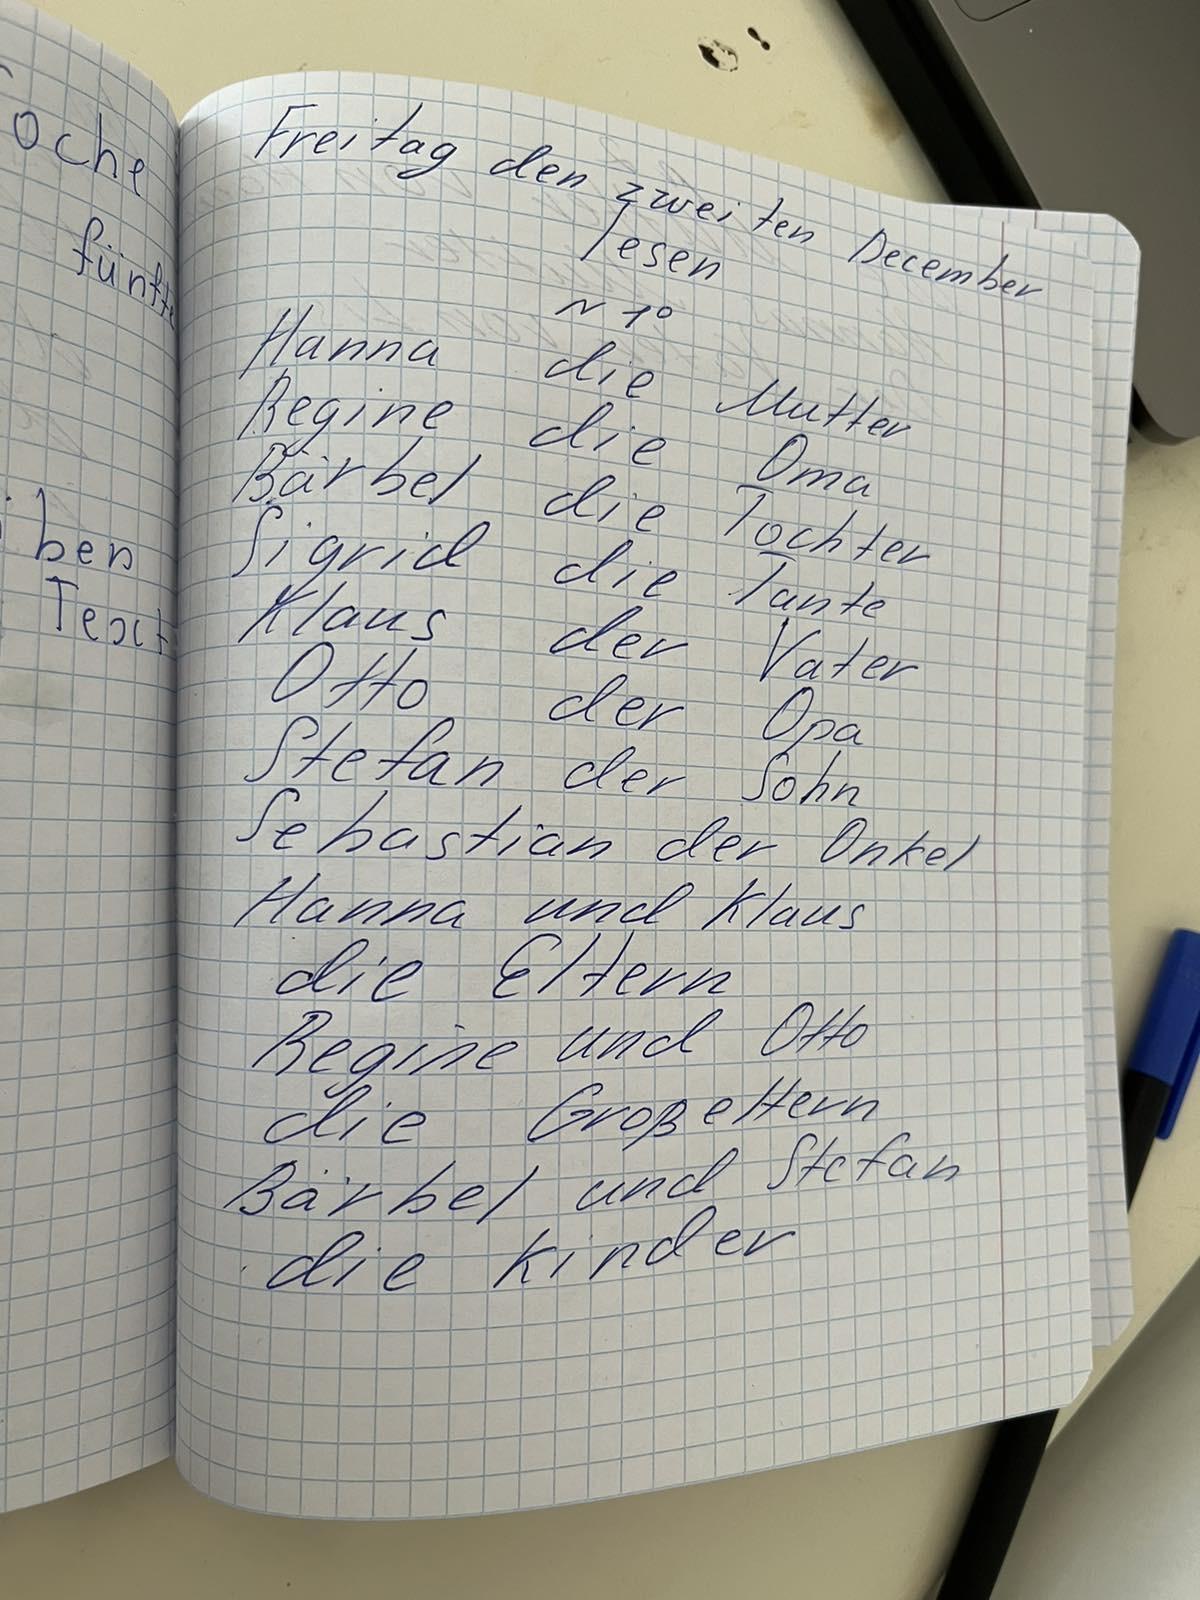 oche
fünfte
iben
Text
Freitag den zweiten December
lesen
N 1º
Hanna die Mutter
Regine die Oma
Bärbel die Tochter
Sigrid die Tante
Klaus der Vater
Otto der Opa
Stefan der Sohn
Sebastian der Onkel
Hanna und Klaus
die Eltern
Regine und Otto
die Großeltern
Bärbel und Stefan
die Kinder